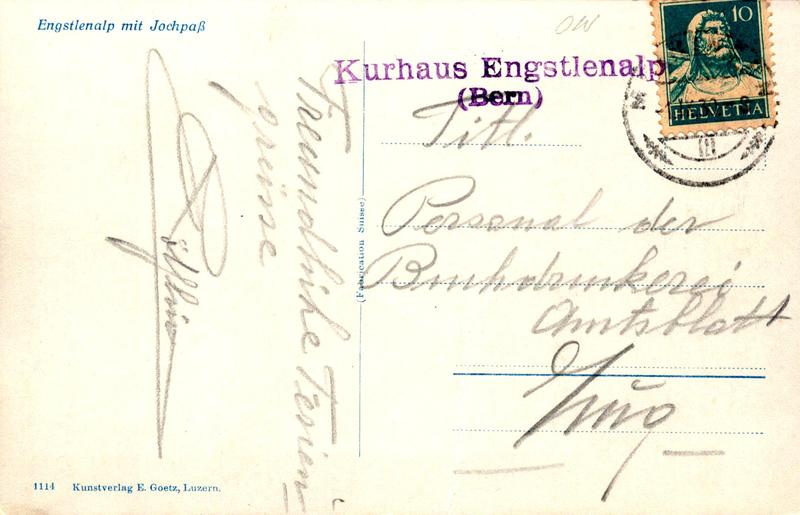 Engstlenalp mit Jochpaß
Kurhaus Engstlenalp
(Bern)
10
HELVETIA
Freundliche Ferien-
grüsse
(Fabrication Suisse)
Titl.
Personal der
Buchdruckerei
Amtsblatt
Zug
1114 Kunstverlag E. Goetz, Luzern.